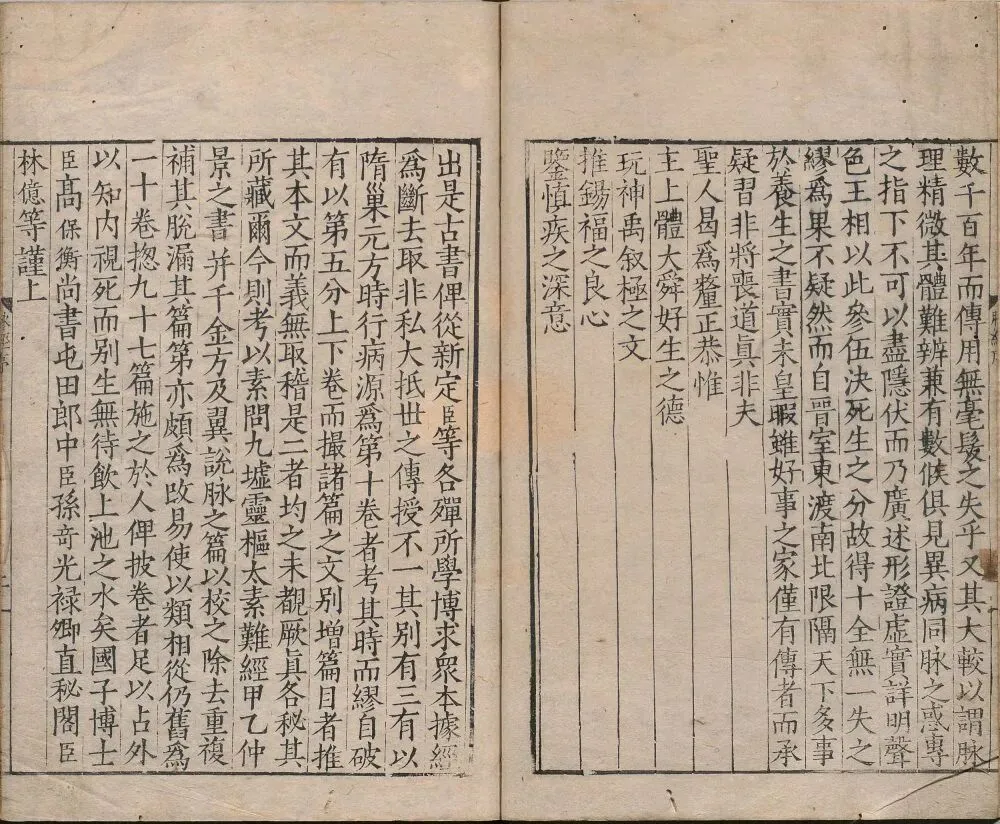 數千百年而傳用無毫髮之失乎又其大較以謂脉
理精微其體難辨兼有數候俱見異病同脉之惑專
之指下不可以盡隱伏而乃廣述形證虛實詳明聲
色王相以此參伍決死生之分故得十全無一失之
繆爲果不疑然而自晉室東渡南北限隔天下多事
於養生之書實未皇暇雖好事之家僅有傳者而承
疑習非將喪道眞非夫
聖人曷爲釐正恭惟
主上體大舜好生之德
玩神禹叙極之文
推錫福之良心
鑒慎疾之深意
出是古書俾從新定臣等各殫所學博求衆本據經
爲斷去取非私大抵世之傳授不一其別有三有以
隋巢元方時行病源爲第十卷者考其時而繆自破
有以第五分上下卷而撮諸篇之文別增篇目者推
其本文而義無取稽是二者均之未覩厥眞各秘其
所藏爾今則考以素問九墟靈樞太素難經甲乙仲
景之書并千金方及翼說脉之篇以校之除去重複
補其脫漏其篇第亦頗爲改易使以類相從仍舊爲
一十卷揔九十七篇施之於人俾披卷者足以占外
以知内視死而别生無待飲上池之水矣國子博士
臣高保衡尚書屯田郎中臣孫奇光禄卿直秘閣臣
林億等謹上